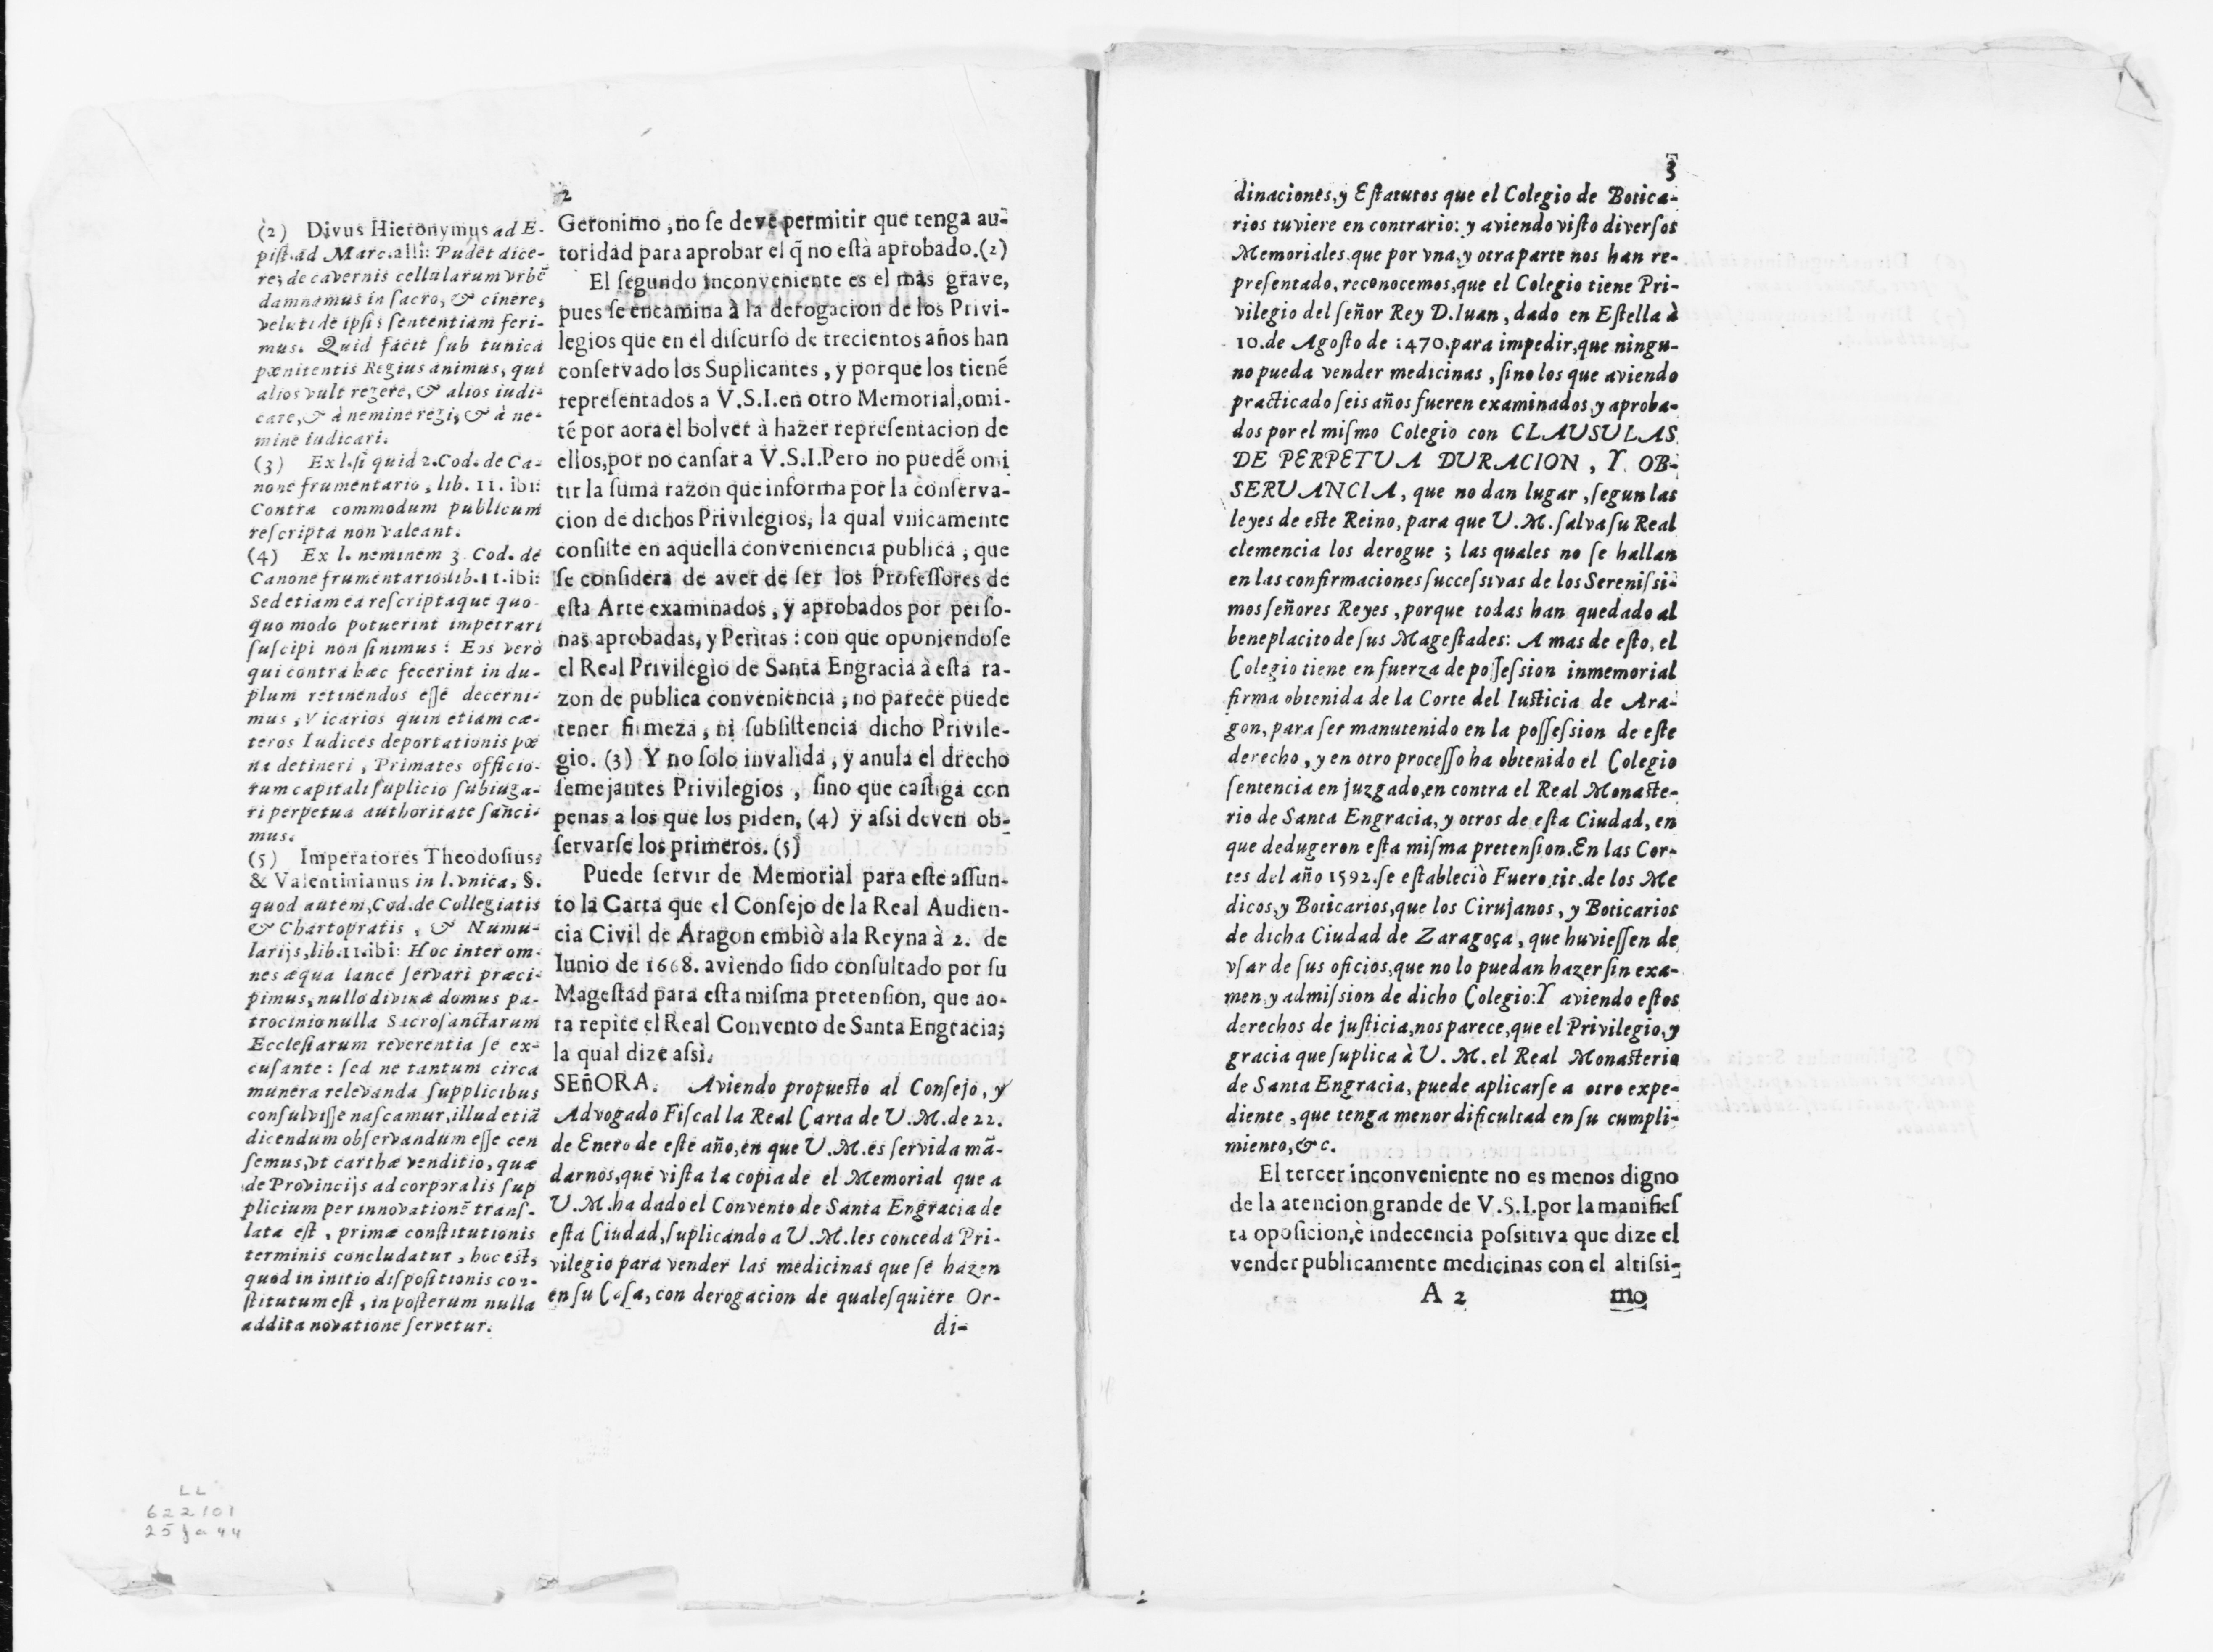 2
(2) Divus Hieronymus ad E-
pist.ad Marc.alli: Pudet dice-
re, de cavernis cellularum vrbē
damnamus in sacro, & cinere,
velut de ipsis sententiam feri-
mus. Quid facit sub tunica
pœnitentis Regius animus, qui
alios vult regere, & alios iudi-
care, & à nemine regi, & à ne-
mine iudicari.
(3) Ex l. si quid 2. Cod. de Ca-
none frumentario, lib. 11. ibi:
Contra commodum publicum
rescripta non valeant.
(4) Ex l. neminem 3. Cod. de
Canone frumentario, lib. 11. ibi:
Sed etiam ea rescripta que quo
quo modo potuerint impetrari
suscipi non sinimus: Eos verò
qui contra hæc fecerint in du-
plum retinendos esse decerni-
mus, Vicarios quin etiam cæ-
teros Iudices deportationis pœ
na detineri, Primates officio-
rum capitali suplicio subiuga-
ri perpetua authoritate sanci-
mus.
(5) Imperatores Theodosius,
& Valentinianus in l. vnica, §.
quod autem, Cod. de Collegiatis
& Chartopratis, & Numu-
larijs, lib. 11. ibi: Hoc inter om-
nes æqua lance servari præci-
pimus, nullo divinæ domus pa-
trocinio nulla Sacrosanctarum
Ecclesiarum reverentia se ex-
cusante: sed ne tantum circa
munera relevanda supplicibus
consulvisse nascamur, illud etiā
dicendum observandum esse cen
semus, vt carthæ venditio, quæ
de Provincijs ad corporalis sup
plicium per innovationē trans-
lata est, primæ constitutionis
terminis concludatur, hoc est,
quod in initio dispositionis con-
stitutum est, in posterum nulla
addita novatione servetur.
Geronimo, no se deve permitir que tenga au-
toridad para aprobar el q̃ no està aprobado. (2)
El segundo inconveniente es el màs grave,
pues se encamina à la derogacion de los Privi-
legios que en el discurso de trecientos años han
conservado los Suplicantes, y porque los tienē
representados a V.S.I. en otro Memorial, omi-
tē por aora el bolver à hazer representacion de
ellos, por no cansar a V.S.I. Pero no puedē omi
tir la suma razon que informa por la conserva-
cion de dichos Privilegios, la qual vnicamente
consiste en aquella conveniencia publica, que
se considera de aver de ser los Professores de
esta Arte examinados, y aprobados por perso-
nas aprobadas, y Peritas: con que oponiendose
el Real Privilegio de Santa Engracia à esta ra-
zon de publica conveniencia, no parece puede
tener firmeza, ni subsistencia dicho Privile-
gio. (3) Y no solo invalida, y anula el drecho
semejantes Privilegios, sino que castiga con
penas a los que los piden, (4) y assi deven ob-
servarse los primeros. (5)
Puede servir de Memorial para este assun-
to la Carta que el Consejo de la Real Audien-
cia Civil de Aragon embiò a la Reyna à 2. de
Iunio de 1668. aviendo sido consultado por su
Magestad para esta misma pretension, que ao-
ra repite el Real Convento de Santa Engracia;
la qual dize assi.
SEñORA. Aviendo propuesto al Consejo, y
Advogado Fiscal la Real Carta de V.M. de 22.
de Enero de este año, en que V.M. es servida mā-
darnos, que vista la copia de el Memorial que a
V.M. ha dado el Convento de Santa Engracia de
esta Ciudad, suplicando a V.M. les conceda Pri-
vilegio para vender las medicinas que se hazen
en su Casa, con derogacion de qualesquiere Or-
di-
LL
622101
25 Ja 44
3
dinaciones, y Estatutos que el Colegio de Botica-
rios tuviere en contrario: y aviendo visto diversos
Memoriales que por vna, y otra parte nos han re-
presentado, reconocemos, que el Colegio tiene Pri-
vilegio del señor Rey D. Iuan, dado en Estella à
10. de Agosto de 1470. para impedir, que ningu-
no pueda vender medicinas, sino los que aviendo
practicado seis años fueren examinados, y aproba-
dos por el mismo Colegio con CLAUSULAS
DE PERPETUA DURACION, Y OB-
SERUANCIA, que no dan lugar, segun las
leyes de este Reino, para que V.M. salva su Real
clemencia los derogue; las quales no se hallan
en las confirmaciones successivas de los Serenissi-
mos señores Reyes, porque todas han quedado al
beneplacito de sus Magestades: A mas de esto, el
Colegio tiene en fuerza de possession inmemorial
firma obtenida de la Corte del Iusticia de Ara-
gon, para ser manutenido en la possession de este
derecho, y en otro processo ha obtenido el Colegio
sentencia en juzgado, en contra el Real Monaste-
rio de Santa Engracia, y otros de esta Ciudad, en
que dedugeron esta misma pretension. En las Cor-
tes del año 1592. se estableciò Fuero, tit. de los Me
dicos, y Boticarios, que los Cirujanos, y Boticarios
de dicha Ciudad de Zaragoça, que huviessen de
vsar de sus oficios, que no lo puedan hazer sin exa-
men, y admission de dicho Colegio: Y aviendo estos
derechos de justicia, nos parece, que el Privilegio, y
gracia que suplica à V. M. el Real Monasterio
de Santa Engracia, puede aplicarse a otro expe-
diente, que tenga menor dificultad en su cumpli-
miento, &c.
El tercer inconveniente no es menos digno
de la atencion grande de V.S.I. por la manifies
ta oposicion, è indecencia possitiva que dize el
vender publicamente medicinas con el altissi-
A 2 mo